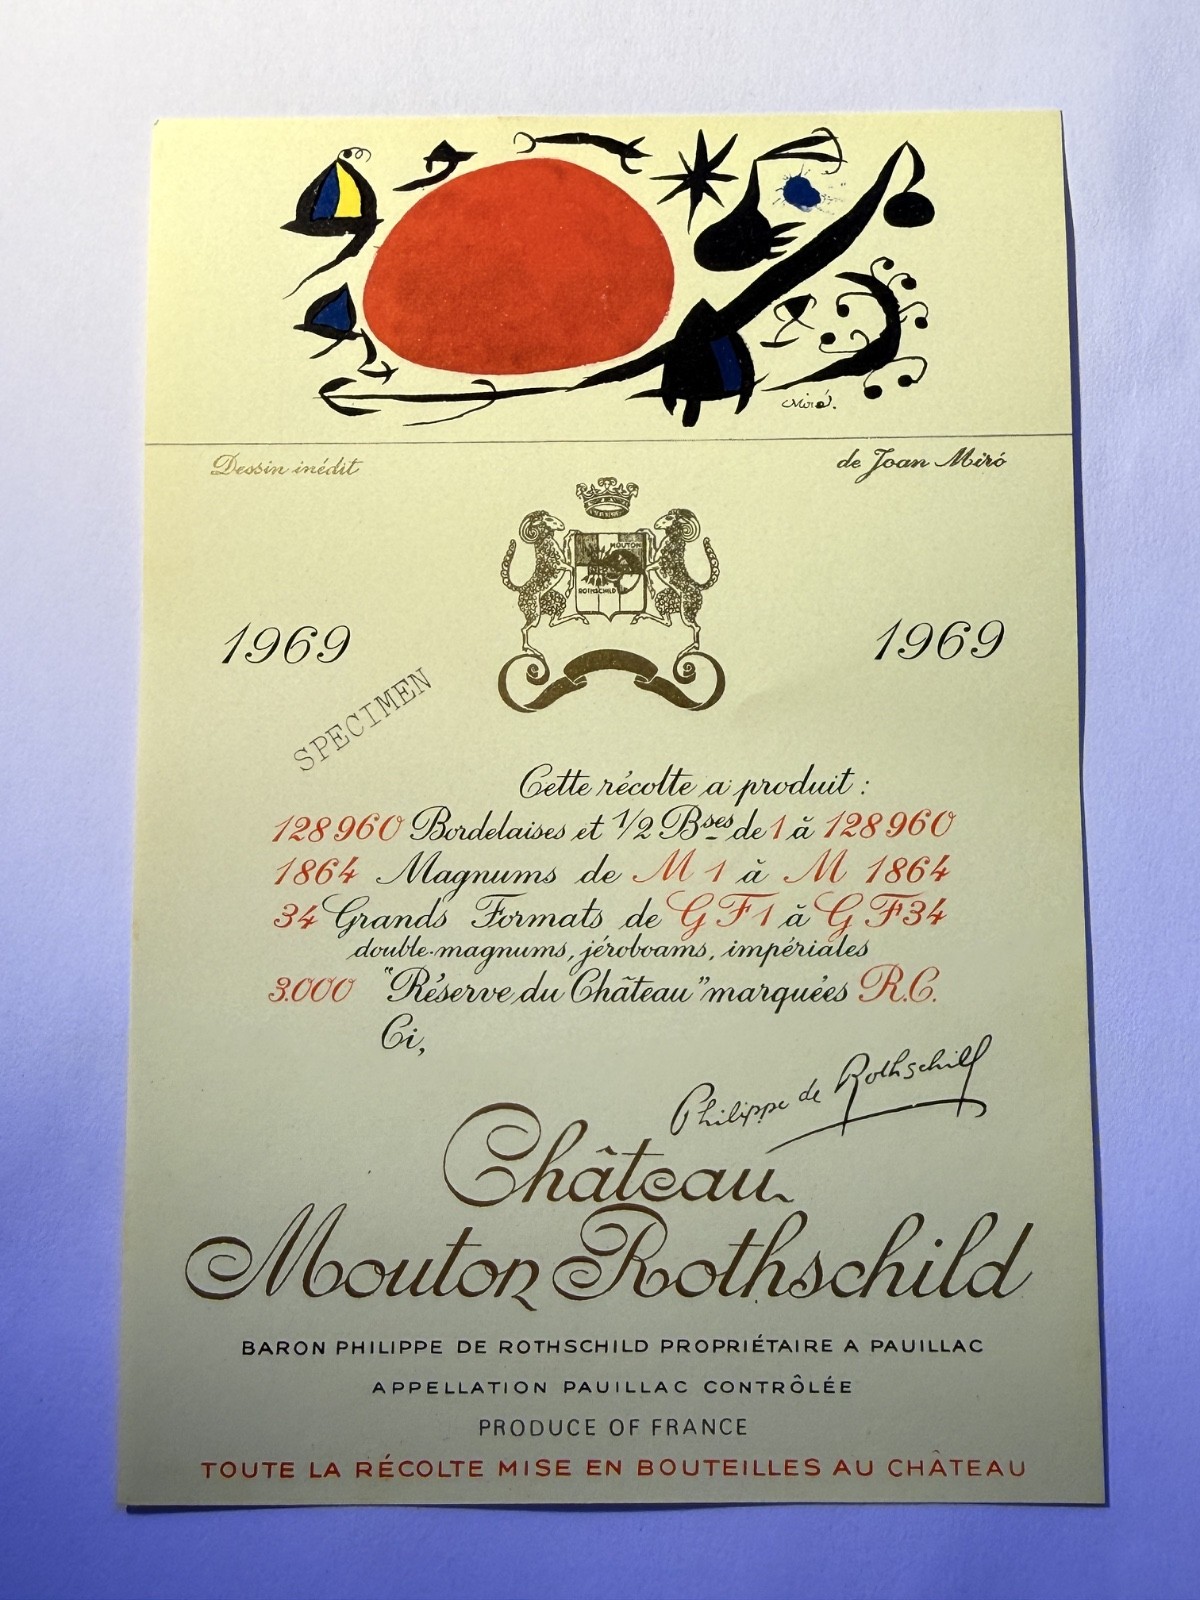 Miró.
Dessin inédit
de Joan Miró
MOUTON
ROTHSCHILD
1969
1969
SPECIMEN
Cette récolte a produit :
128960 Bordelaises et 1/2 Bses de 1 à 128960
1864 Magnums de M 1 à M 1864
34 Grands Formats de G F 1 à G F 34
double-magnums, jéroboams, impériales
3.000 "Réserve du Château" marquées R.C.
Ci,
Philippe de Rothschild
Château
Mouton Rothschild
BARON PHILIPPE DE ROTHSCHILD PROPRIÉTAIRE A PAUILLAC
APPELLATION PAUILLAC CONTRÔLÉE
PRODUCE OF FRANCE
TOUTE LA RÉCOLTE MISE EN BOUTEILLES AU CHÂTEAU